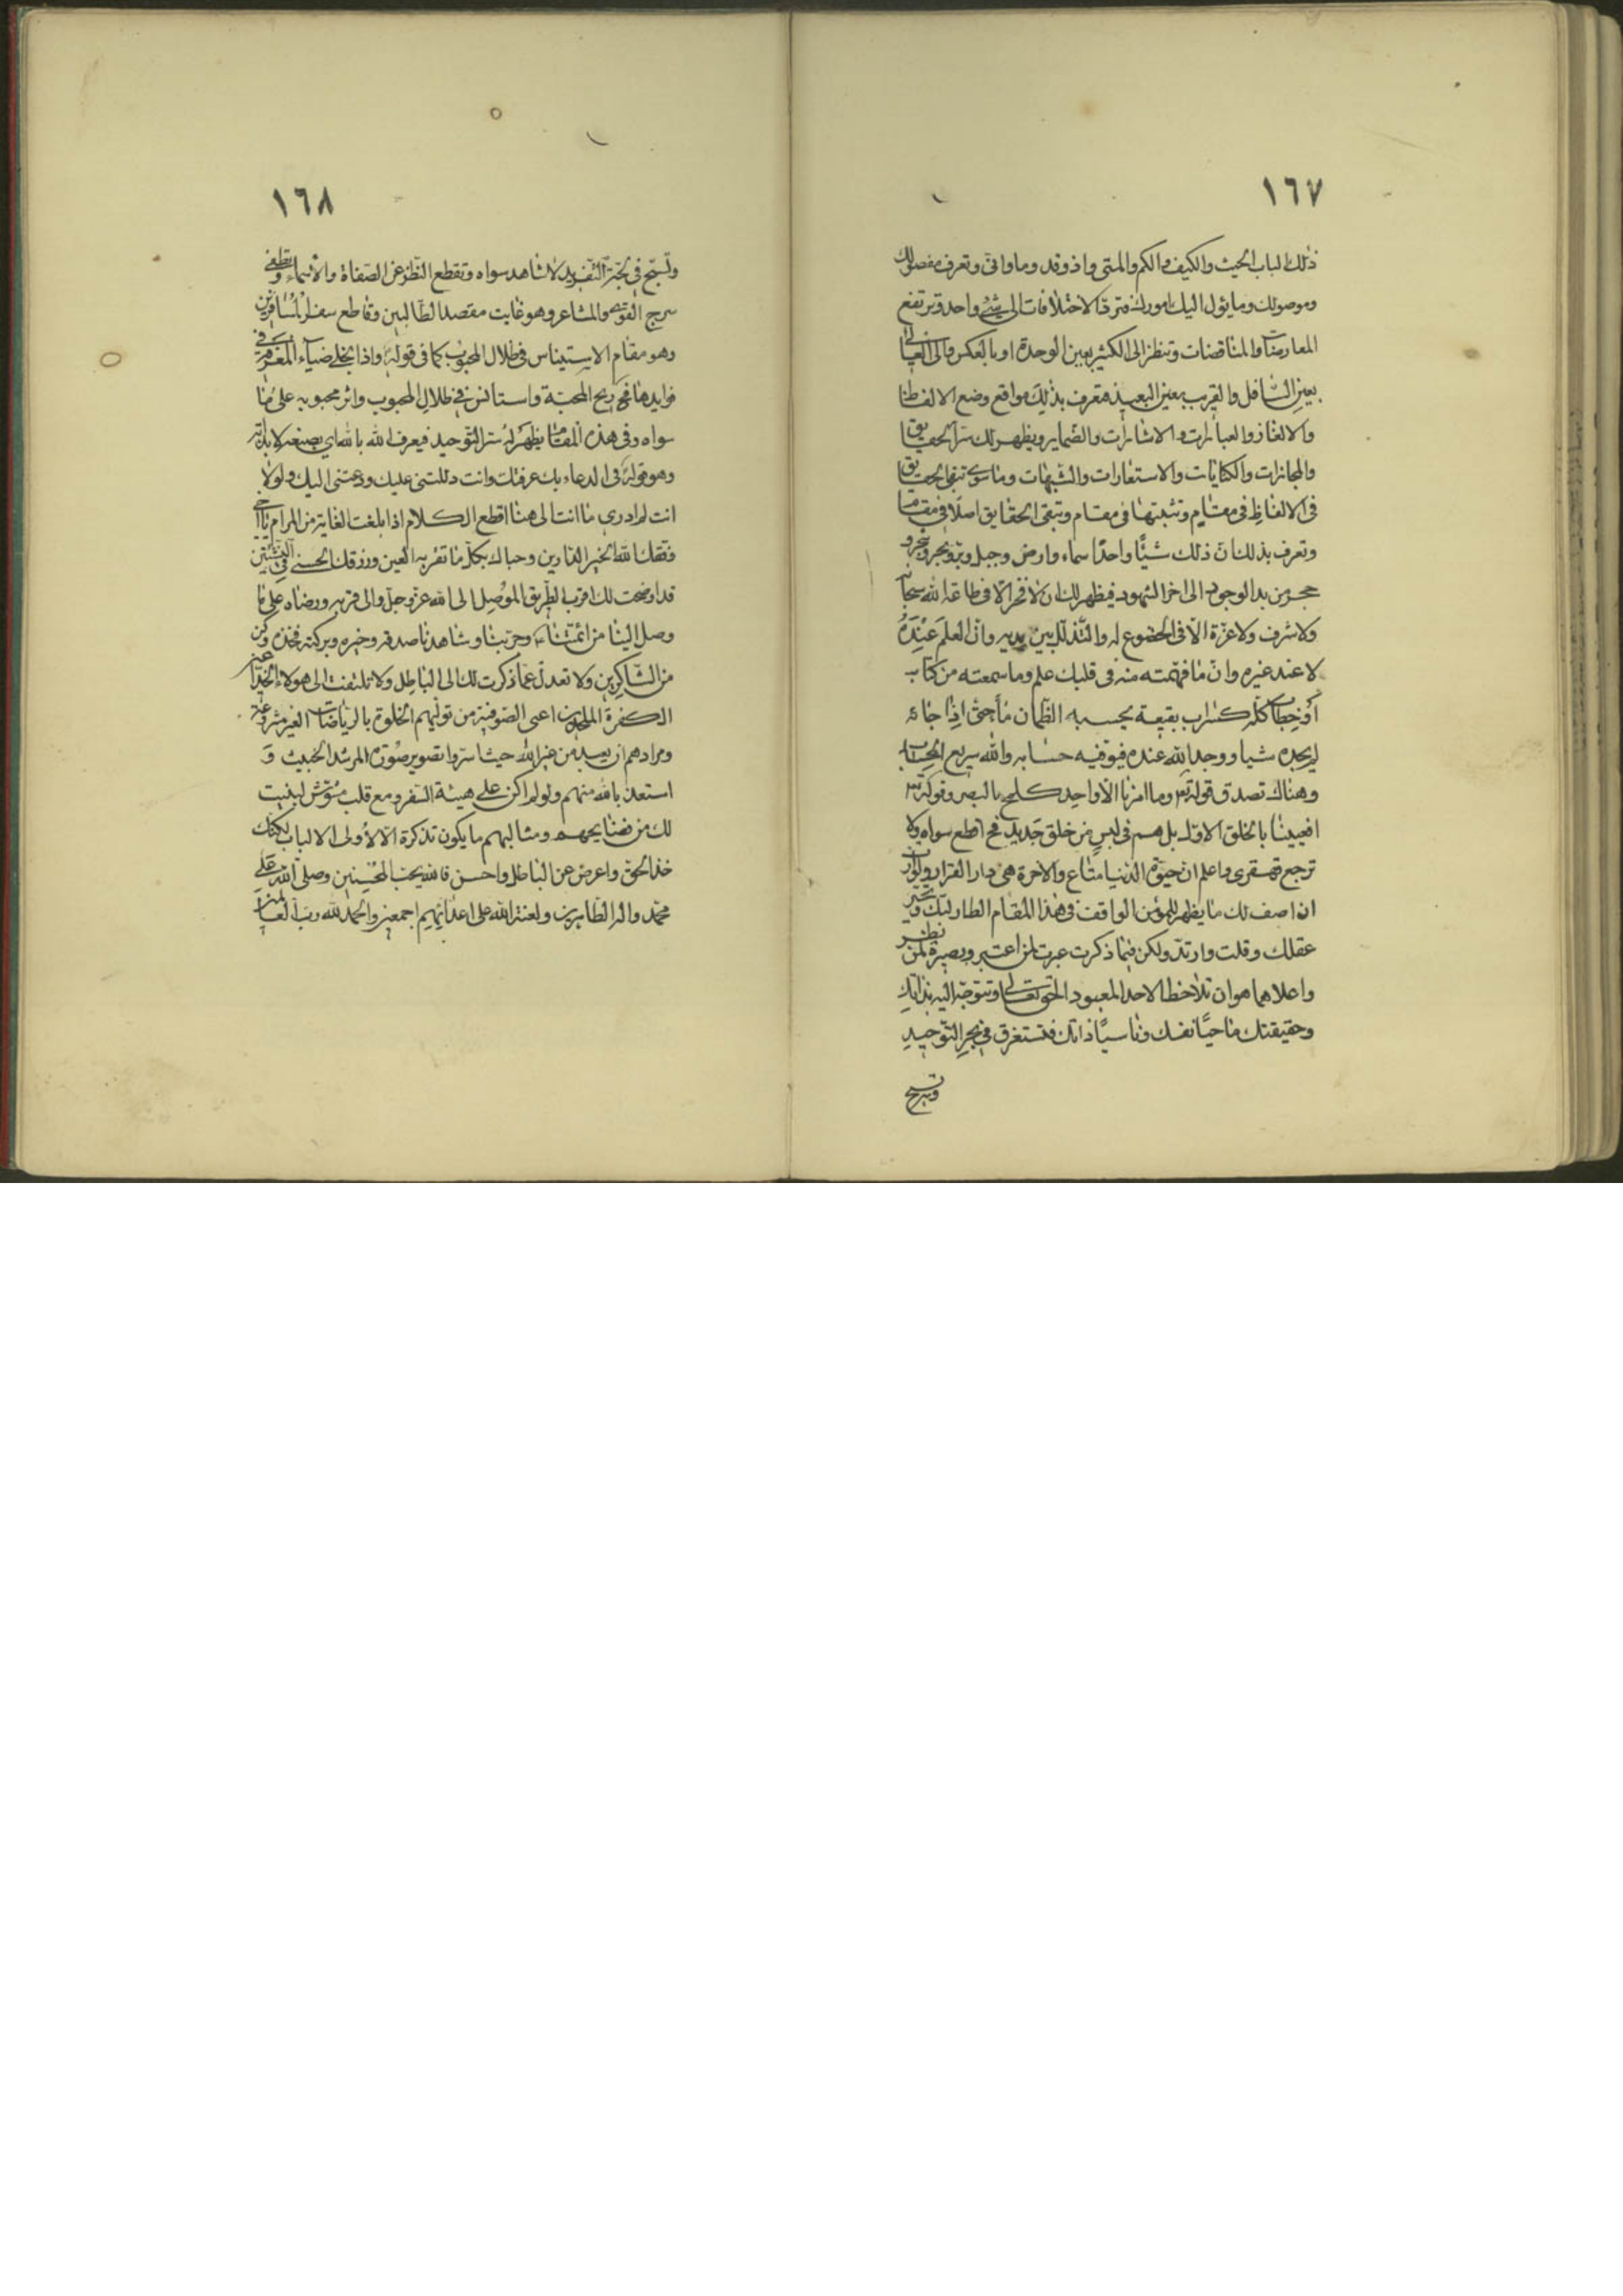 ١٦٧
ذلك الباب الحيث والكيف والكم والمتى واذ وقد وما وانى وتعرف مفصولك
وموصولك وما يئول اليك امورك فترد الاختلافات الى شئ واحد وترتفع
المعارضات والمناقضات وتنظر الى الكثير بعين الوحدة او بالعكس والى العالى
بعين السافل والقريب بعين البعيد فتعرف بذلك مواقع وضع الالفاظ
والالغاز والعبارات والاشارات والضماير ويظهر لك سر الحقايق
والمجازات والكنايات والاستعارات والشبهات وما سوى الحقايق
فى الالفاظ فى مقام وتثبتها فى مقام وتبقى الحقايق اصلا فى مقام
وتعرف بذلك ان ذلك شيئا واحدا سماء وارض وجبل وبر وبحر وشجر و
حجر من بدء الوجود الى اخر الشهود فيظهر لك ان لا فخر الا فى طاعة الله سبحانه
ولا شرف ولا عزة الا فى الخضوع له والتذلل بين يديه وان العلم عنده
لا عند غيره وان ما فهمته منه فى قلبك علم وما سمعته من كتاب
او خطاب كله كسراب بقيعة يحسبه الظمان ماء حتى اذا جائه
لم يجده شيئا ووجد الله عنده فيوفيه حسابه والله سريع الحساب
وهناك تصدق قوله تعالى وما امرنا الا واحدة كلمح بالبصر وقوله تعالى
افعيينا بالخلق الاول بل هم فى لبس من خلق جديد فح اقطع سواه ولا
ترجع قهقرى واعلم ان حيوة الدنيا متاع والاخرة هى دار القرار ولو اردت
ان اصف لك ما يظهر للمؤمن الواقف فى هذا المقام الطار لبك وتحير
عقلك وقلت وارتد ولكن فيما ذكرت عبرت لمن اعتبر وبصيرة لمن نظر
واعلاهما هو ان تلاحظ الاحد المعبود الحق تعالى وتتوجه اليه بذاتك
وحقيقتك ماحيا نفسك وناسيا ذاتك فتستغرق فى بحر التوحيد
وتسبح
١٦٨
وتسبح فى لجة التفريد لا تشاهد سواه وتقطع النظر عن الصفاة والاسماء وتطفى
سرج القوى والمشاعر وهو غايت مقصد الطالبين وقاطع سفر المسافرين
وهو مقام الاستيناس فى ظلال المحبوب كما فى قوله واذا تجلى ضياء المعرفة فى
فوايدها هيج ريح المحبة واستانس فى ظلال المحبوب واثر محبوبه على ما
سواه وفى هذه المقام يظهر له سر التوحيد فيعرف الله بالله اى بصنعه لا بذاته
وهو قوله فى الدعاء بك عرفتك وانت دللتنى عليك ودعتنى اليك ولولا
انت لم ادرى ما انت الى هنا اقطع الكلام اذا بلغت الغاية من المرام يا اخى
وفقك الله لخير الدارين وحباك بكل ما تقر به العين ورزقك الحسنى فى النشئتين
قد اوضحت لك اقرب الطريق الموصل الى الله عز وجل والى قربه ورضاه على ما
وصل الينا من ائمتنا وجربنا وشاهدنا صدقه وخيره وبركته فخذه وكن
من الشاكرين ولا تعدل عما ذكرت لك الى الباطل ولا تلتفت الى هولاء
الكفرة الملحدين اعنى الصوفية من توليهم الخلوة بالرياضات الغير مشروعة
ومرادهم ان يعبد من غير الله حيث اسروا تصوير صورة المرشد الخبيث و
استعذ بالله منهم ولو لم اكن على هيئة السفر ومع قلب مشوش لبنيت
لك من فضايحهم ومثالبهم ما يكون تذكرة الا لاولى الالباب لكنك
خذ الحق واعرض عن الباطل واحسن فالله يحب المحسنين وصلى الله على
محمد واله الطاهرين ولعنة الله على اعدائهم اجمعين والحمد لله رب العالمين